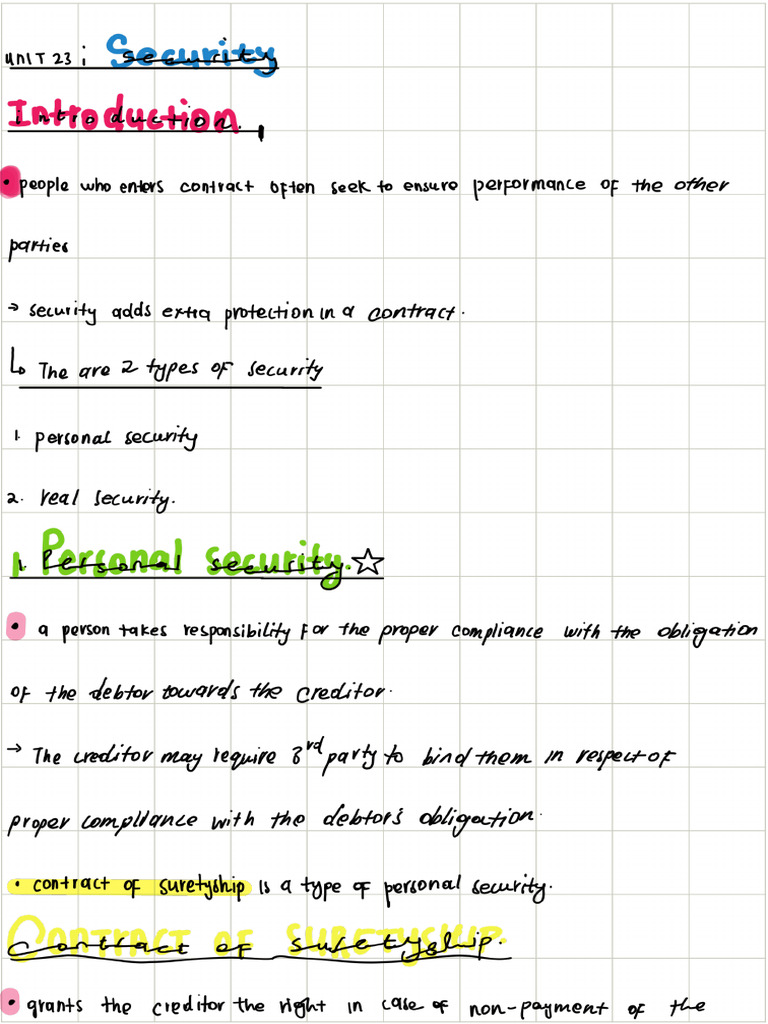 UNIT 23 : Security
Introduction.
• people who enters contract often seek to ensure performance of the other
parties
→ security adds extra protection in a contract.
↳ The are 2 types of security
1. personal security
2. real security.
1. Personal security. ☆
• a person takes responsibility for the proper compliance with the obligation
of the debtor towards the creditor.
→ The creditor may require 3rd party to bind them in respect of
proper compliance with the debtor's obligation.
• contract of suretyship is a type of personal security.
Contract of suretyship.
• grants the creditor the right in case of non-payment of the